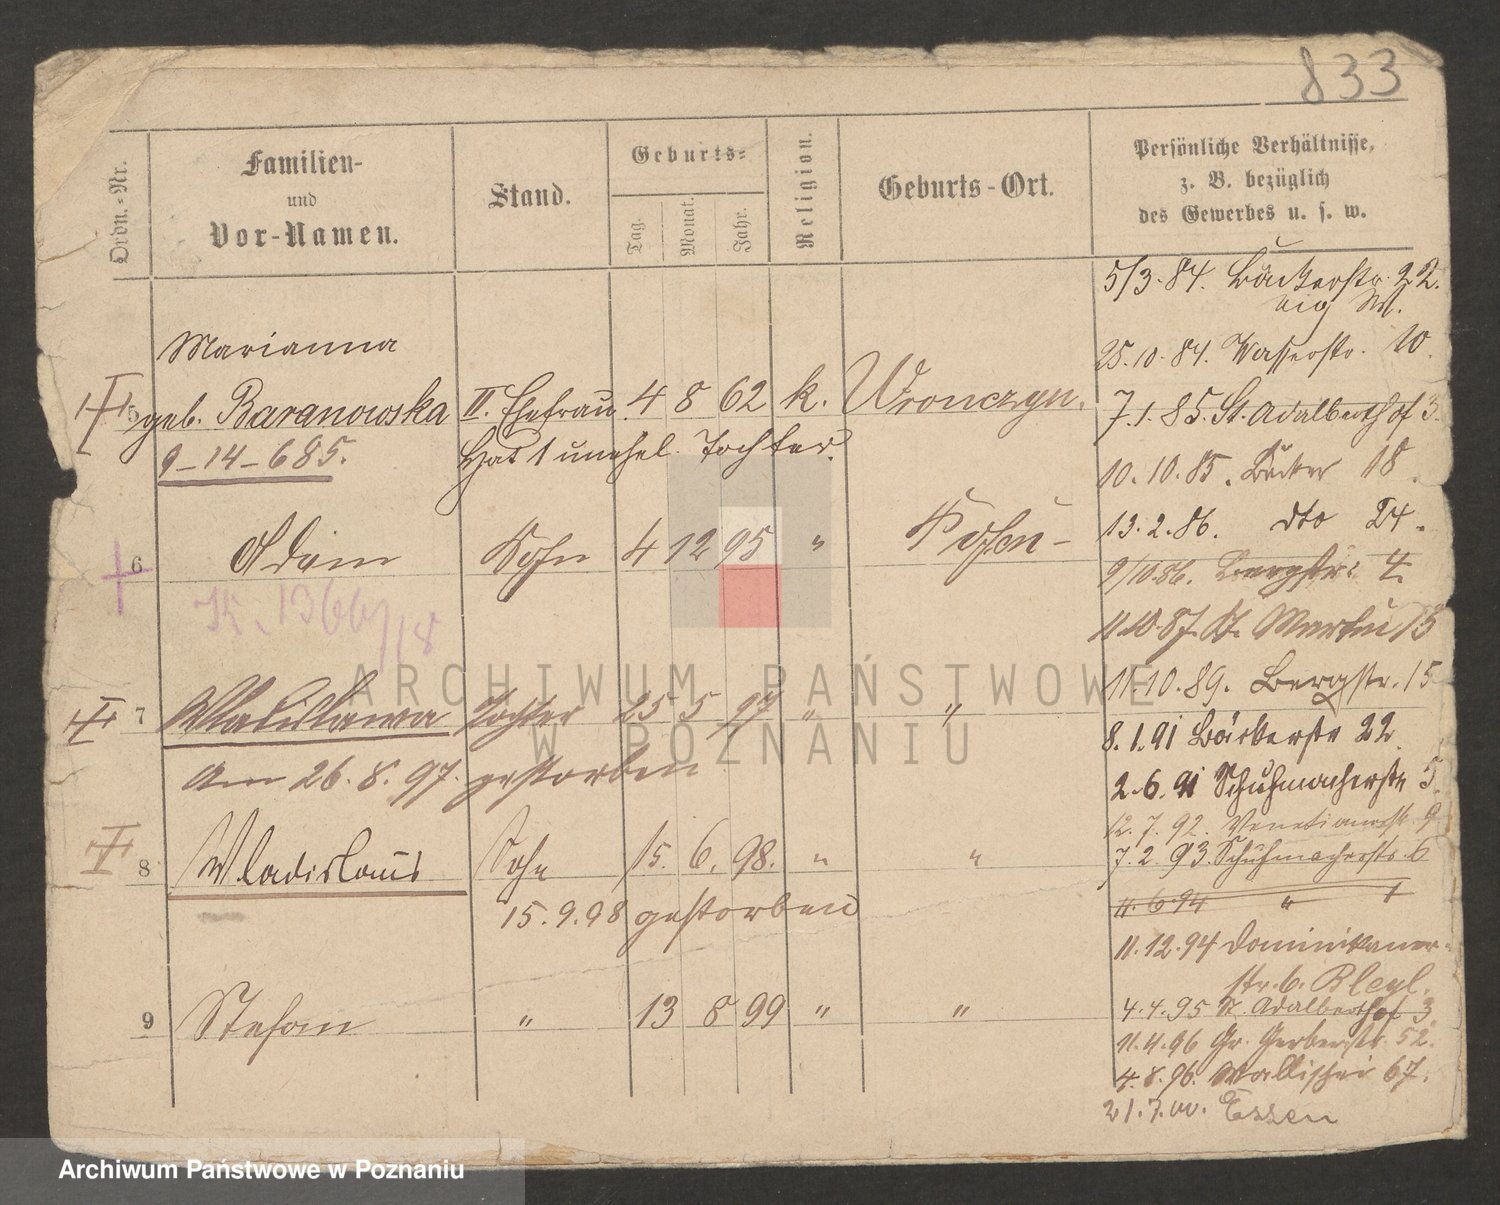 833
Ordn.-Nr.
Familien-
und
Vor-Namen.
Stand.
Geburts-
Tag.
Monat.
Jahr.
Religion.
Geburts-Ort.
Persönliche Verhältnisse,
z. B. bezüglich
des Gewerbes u. s. w.
Marianna
5 geb. Baranowska II. Ehefrau 4 8 62 k. Wronczyn.
9-14-685. Hat 1 unehel. Tochter.
6 Adam Sohn 4 12 95 " Posen
K. 1366/18
7 Wladislawa Tochter 25 5 97 " "
am 26.8.97. gestorben
8 Wladislaus Sohn 15. 6. 98. " "
15.9.98 gestorben
9 Stefan " 13 8 99 " "
5/3.84. Bäckerstr. 22.
25.10.84. Wasserstr. 10.
7.1.85. St. Adalberthof 3.
10.10.85. Bäcker 18.
13.2.86. dto 24.
9/10.86. Bergstr. 4.
11.10.87. St. Martin 15
11.10.89. Bergstr. 15
8.1.91 Bäckerstr 22
2.6.91 Schuhmacherstr 5.
12.7.92. Venetianerstr 9
7.2.93. Schuhmacherstr. 6
11.6.94 " 1
11.12.94 Dominikaner-
str. 6.
4.4.95 St. Adalberthof 3.
11.4.96 Gr. Gerberstr. 52.
4.8.96. Wallischei 67.
21.7.00. Essen
ARCHIWUM PAŃSTWOWE
W POZNANIU
Archiwum Państwowe w Poznaniu